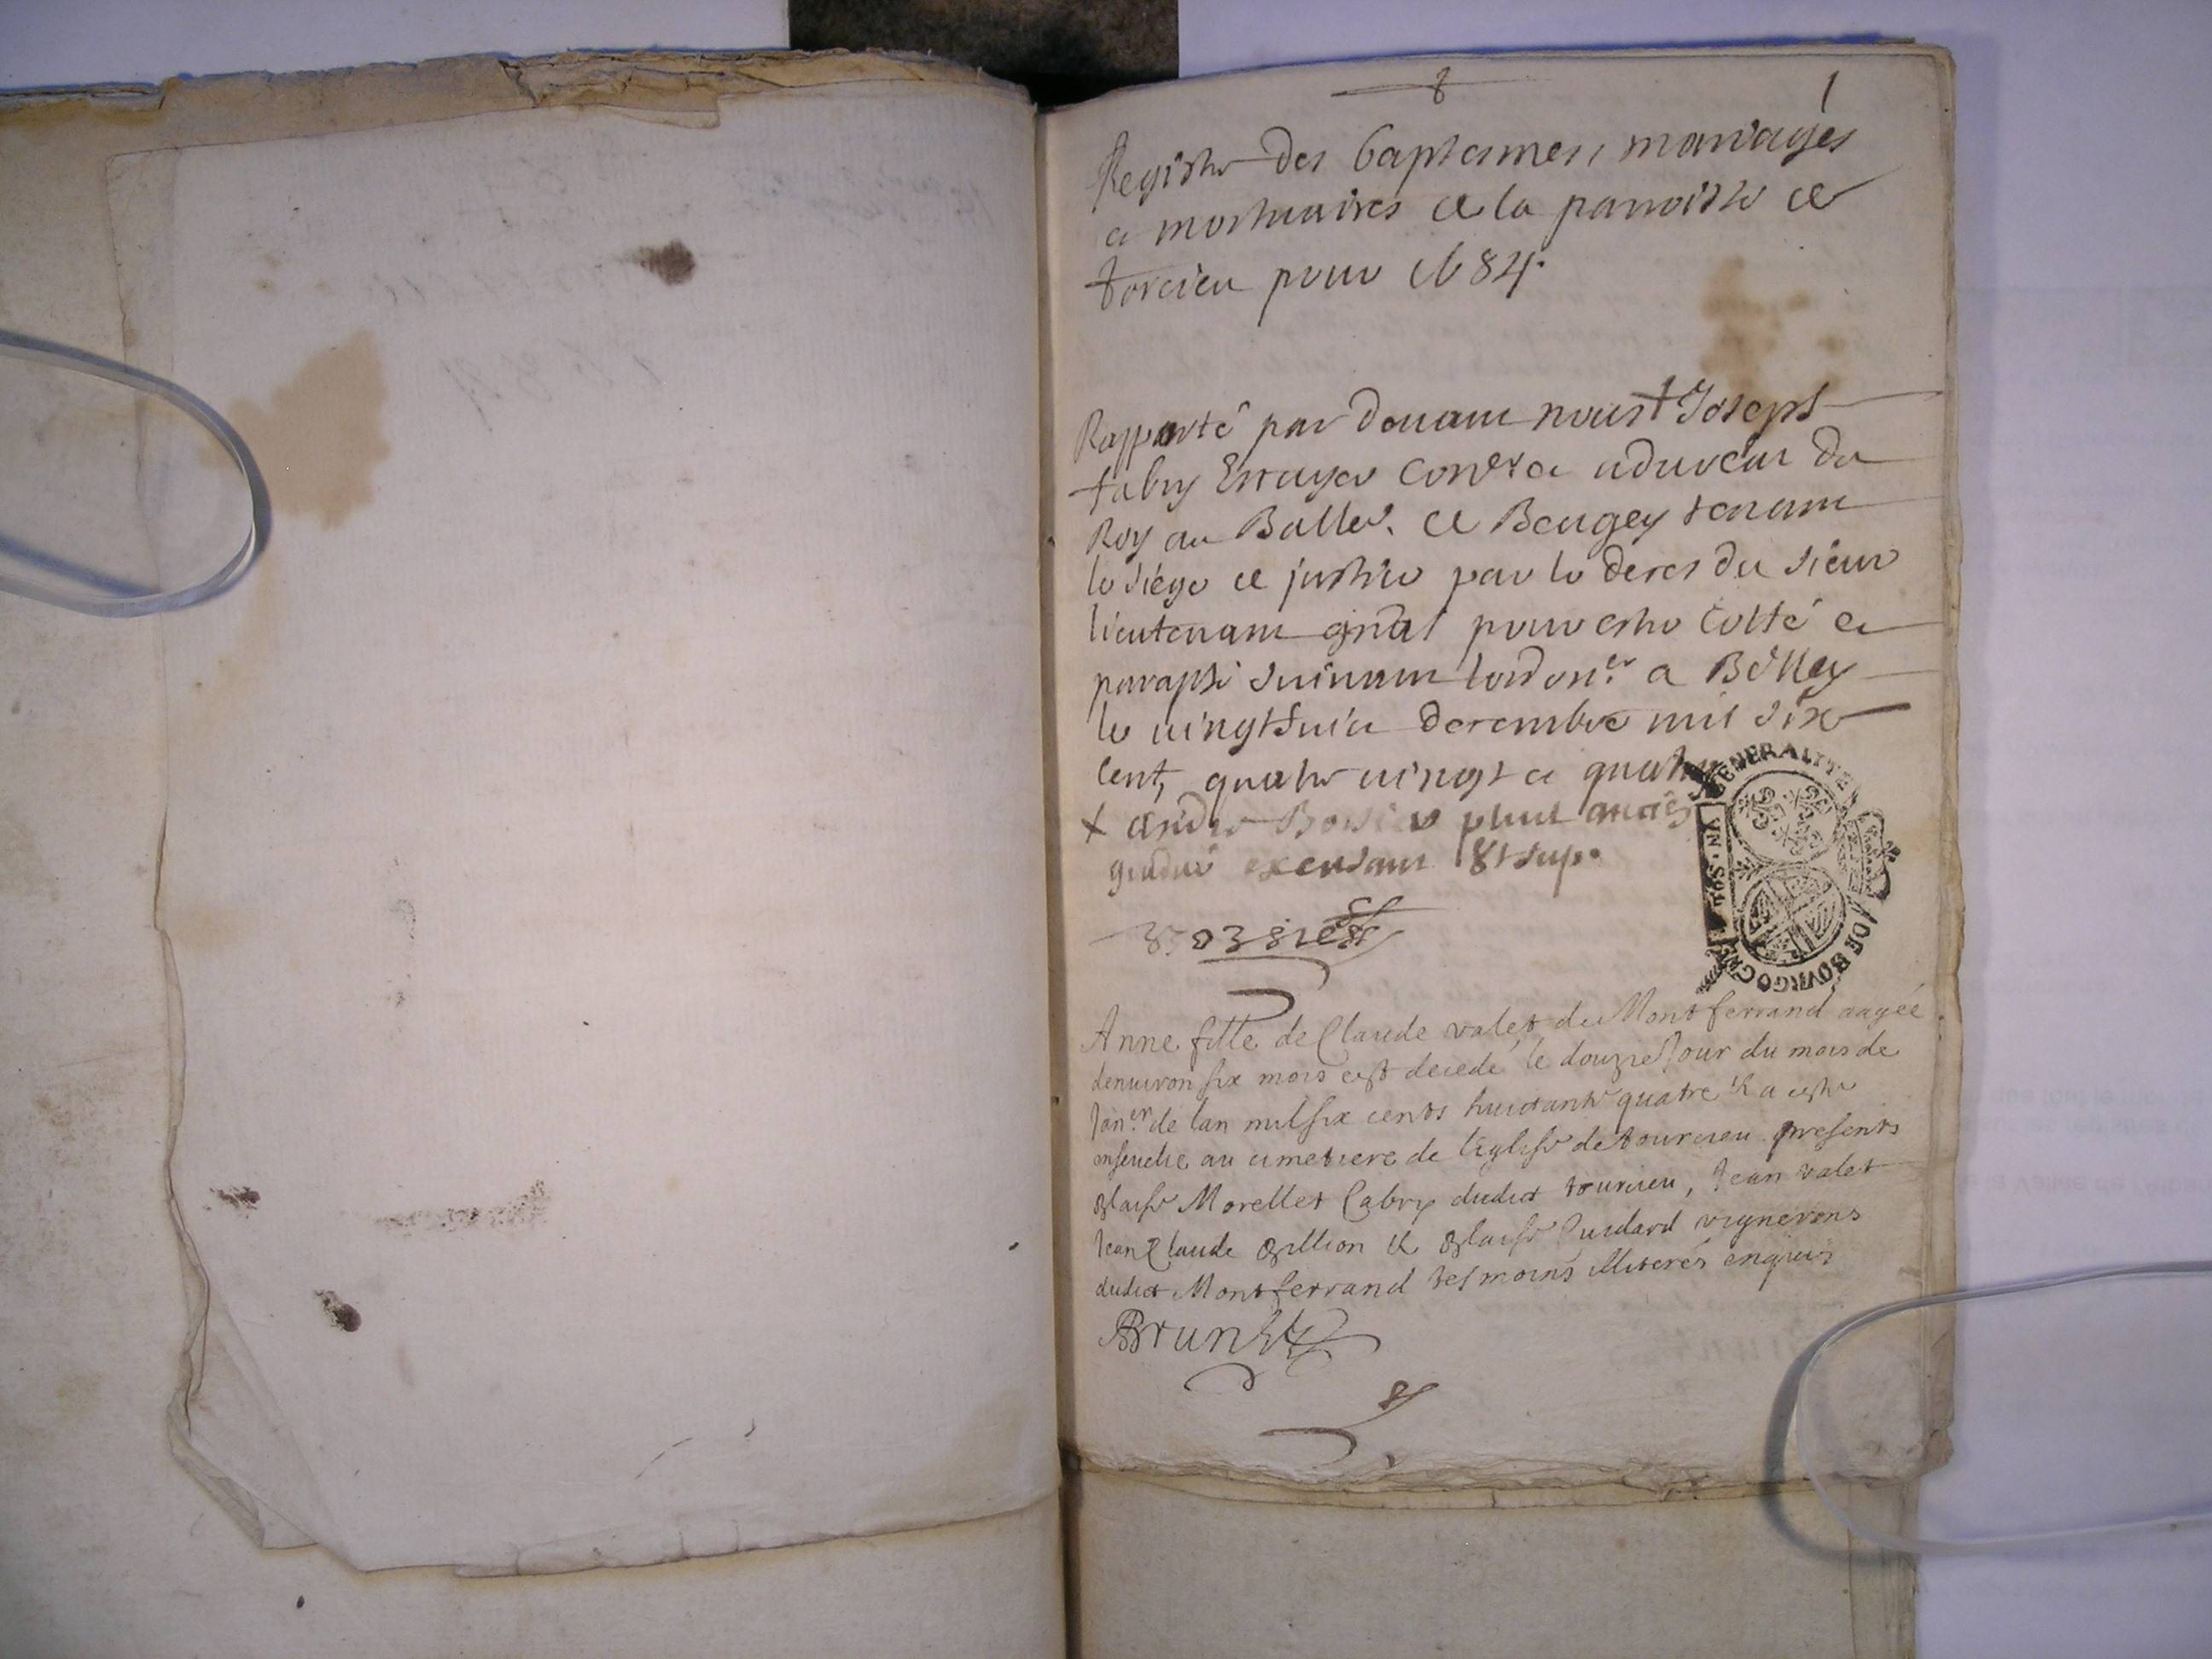 1
Registre des baptesmes, mariages
et mortuaires de la parroisse de
torcieu pour 1684.
Rapporté par devant nous + Joseph
fabry Escuyer Cons.er et advocat du
Roy au Balle. de Beugey tenant
le siége de justice par le deces du sieur
lieutenant gñal pour estre cotté et
paraphé suivant lordon.ce a Belley
le vingt huict decembre mil six
cent, quatre vingt et quatre
+ andré Bossier plus antien
gradué
GENERALITE
DE BOVRGOGNE
VN·SOL
Anne fille de Claude valet de Montferrand aagée
denuiron six mois est decedé le douzie Jour du mois de
Janer. de lan mil six cents huictante quatre & a esté
enseuelie au cimetiere de léglise de tourcieu presents
Blaise Morellet Cabry dudict tourcieu, Jean valet
Jean Claude Billion & Blaise Guidard vignerons
dudict Montferrand tesmoins illiterés enquis
Brunet